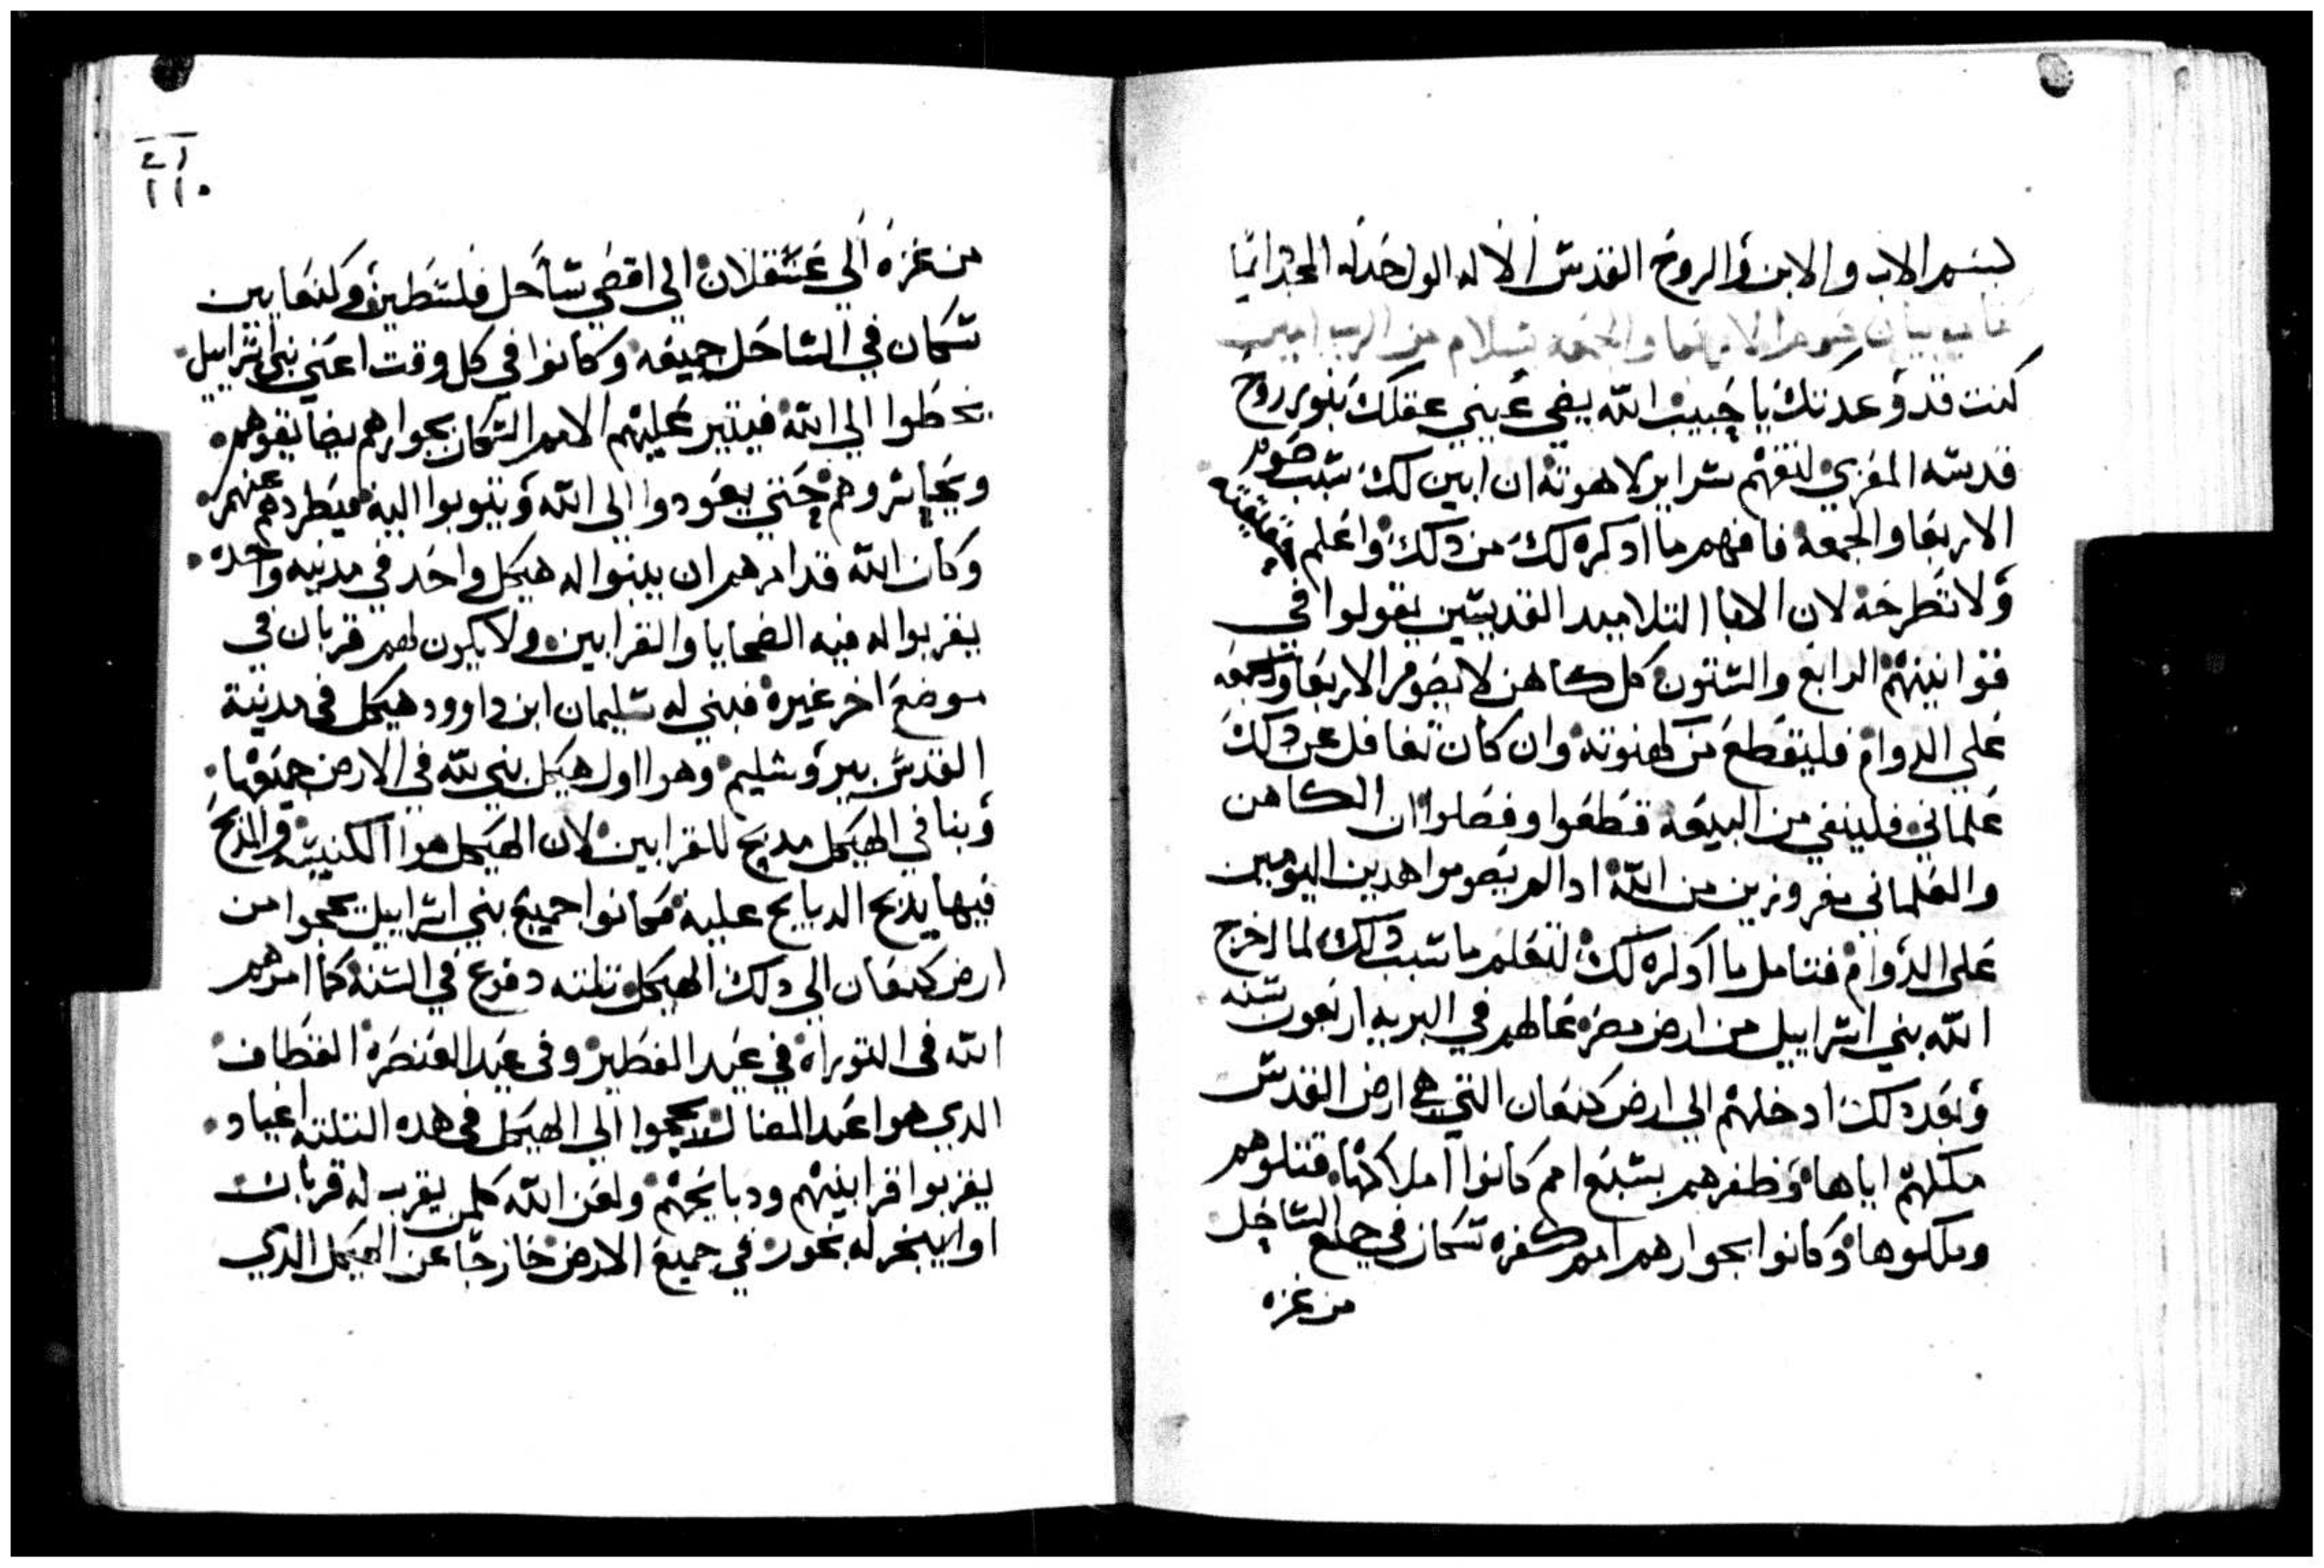 بسم الاب والابن والروح القدس الاله الواحد له المجد دايما
صوم الاربعا والجمعه بسلام من الرب امين
كنت قد وعدتك يا حبيب الله يضي عيني عقلك بنور روح
قدسه المغزي لتفهم سراير لاهوته ان ابين لك سبب صوم
الاربعا والجمعه فافهم ما ادكره لك من دلك واعلم قيمته
ولا تطرحه لان الابا التلاميد القديسين يقولوا في
قوانينهم الرابع والستون كل كاهن لا يصوم الاربعا والجمعه
علي الدوام فليتقطع من كهنوته وان كان تغافل عن دلك
علماني فلينفي من البيعه قطعوا وفصلوا ان الكاهن
والعلماني مفروزين من الله ادا لم يصوموا هدين اليومين
علي الدوام فتامل ما ادكره لك لتعلم ما سبب دلك لما اخرج
الله بني اسراييل من ارض مصر عالهم في البريه اربعون سنه
وبعد دلك ادخلهم الي ارض كنعان التي هي ارض القدس
ملكهم اياها وظفرهم بسبع امم كانوا املاكها قتلوهم
وملكوها وكانوا بجوارهم امم كفره سكان في جميع الساحل
من غزه
٢١
١١٠
من غزه الي عسقلان الي اقصي ساحل فلسطين وكنعانيين
سكان في الساحل جميعه وكانوا في كل وقت اعني بني اسراييل
يخطوا الي الله فيتير عليهم الامم السكان بجوارهم يضايقوهم
وهم حتي يعودوا الي الله ويتوبوا اليه فيطردهم عنهم
وكان الله قد امرهم ان يبنوا له هيكل واحد في مدينه واحده
يقربوا له فيه الضحايا والقرابين ولا يكون لهم قربان في
موضع اخر غيره فبني له سليمان ابن داوود هيكل في مدينة
القدس بيروشليم وهو اول هيكل بني لله في الارض جميعها
وبنا في الهيكل مدبح للقرابين لان الهيكل هوا الكنيسه والمدبح
فيها يدبح الدبايح عليه فكانوا جميع بني اسراييل يحجوا من
ارض كنعان الي دلك الهيكل تلته دفوع في السنه كما امرهم
الله في التوراه في عيد الفطير وفي عيد العنصره القطاف
الدي هوا عيد المضال يحجوا الي الهيكل في هده التلته اعياد
يقربوا قرابينهم ودبايحهم ولعن الله كلمن يقرب له قربان
او يبخر له بخور في جميع الارض خارجا عن الهيكل الدي